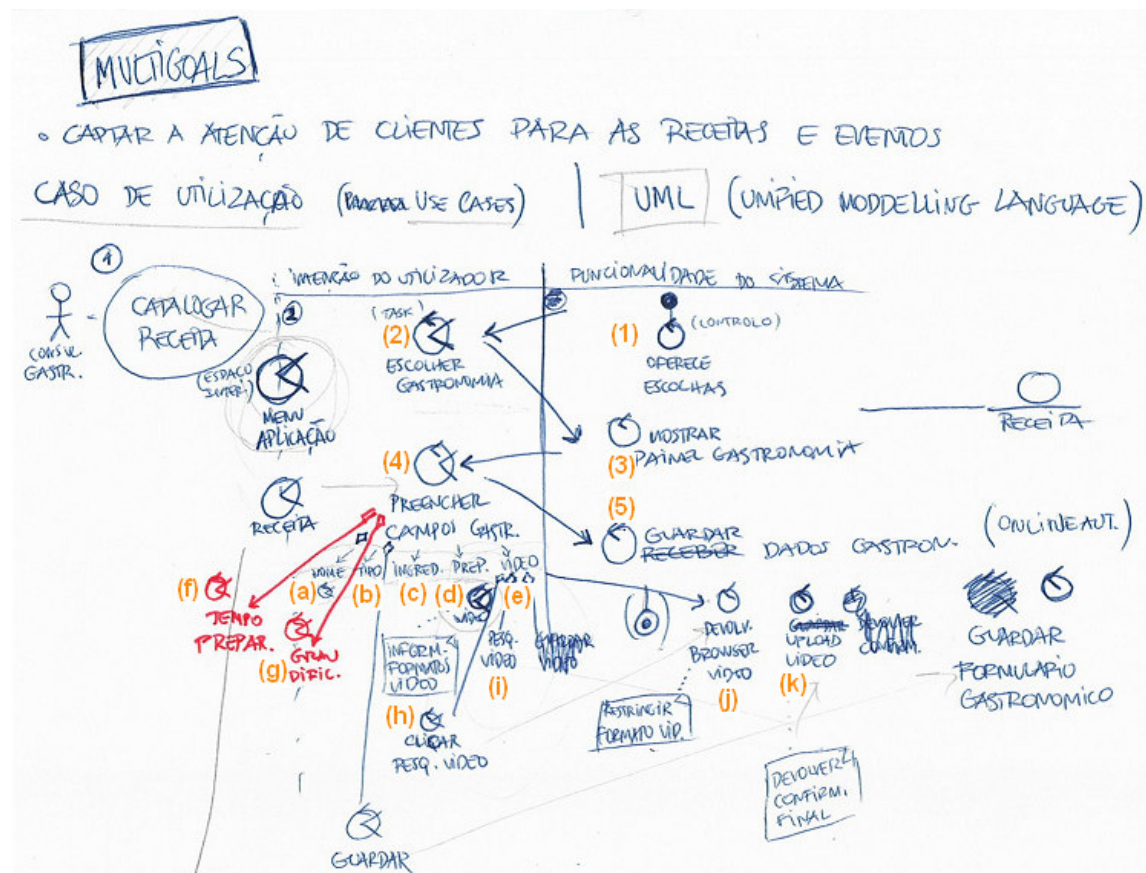 MULTIGOALS
• CAPTAR A ATENÇÃO DE CLIENTES PARA AS RECEITAS E EVENTOS
CASO DE UTILIZAÇÃO (USE CASES) | UML (UNIFIED MODDELLING LANGUAGE)
1
CATALOGAR
RECEITA
CONSUL.
GASTR.
INTENÇÃO DO UTILIZADOR
FUNCIONALIDADE DO SISTEMA
2
(ESPAÇO
INTER.)
MENU
APLICAÇÃO
(TASK
(2)
ESCOLHER
GASTRONOMIA
(1)
(CONTROLO)
OFERECE
ESCOLHAS
RECEITA
(3)
MOSTRAR
PAINEL GASTRONOMIA
(4)
PREENCHER
CAMPOS GASTR.
RECEITA
(5)
GUARDAR
RECEBER DADOS GASTRON. (ONLINE AUT.)
NOME TIPO INGRED. PREP. VIDEO
(a) (b) (c) (d) (e)
VIDEO
(f)
TEMPO
PREPAR.
(g)
GRAU
DIFIC.
INFORM.
FORMATOS
VIDEO
PESQ.
VIDEO
(i)
GUARDAR
VIDEO
(h)
CLICAR
PESQ. VIDEO
DEVOLV.
BROWSER
VIDEO
(j)
RESTRINGIR
FORMATO VID.
GUARDAR
UPLOAD
VIDEO
(k)
DEVOLVER
CONFIRM.
DEVOLVER
CONFIRM.
FINAL
GUARDAR
FORMULARIO
GASTRONOMICO
GUARDAR